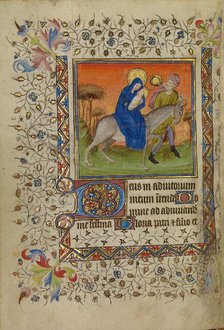 Deus in adiutorium
meum intende Do
mine ad adiuuand
me festina Gloria patri et filio et